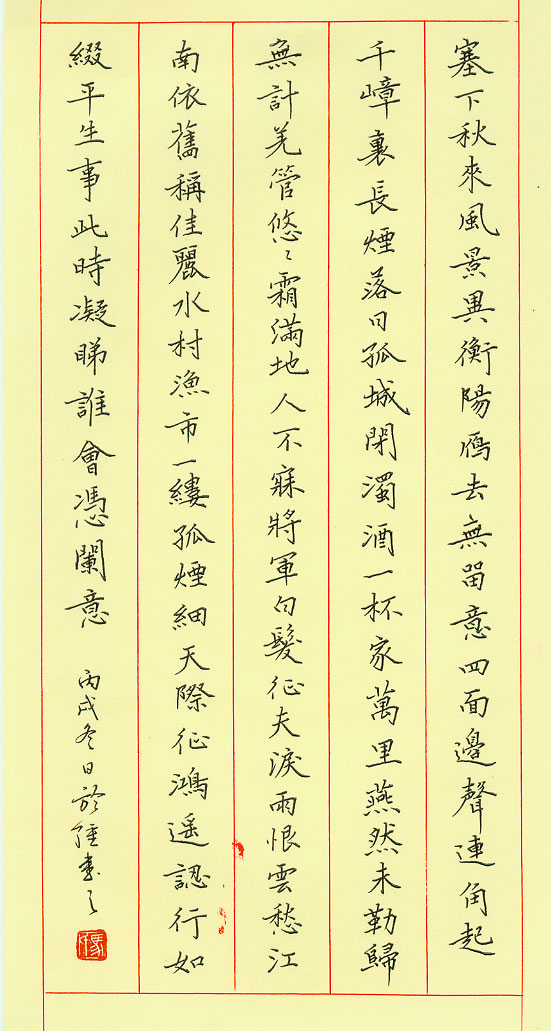 塞下秋來風景異衡陽鴈去無留意四面邊聲連角起
千嶂裏長煙落日孤城閉濁酒一杯家萬里燕然未勒歸
無計羌管悠〻霜滿地人不寐將軍白髮征夫淚雨恨雲愁江
南依舊稱佳麗水村漁市一縷孤煙細天際征鴻遥認行如
綴平生事此時凝睇誰會憑闌意
丙戌冬日於